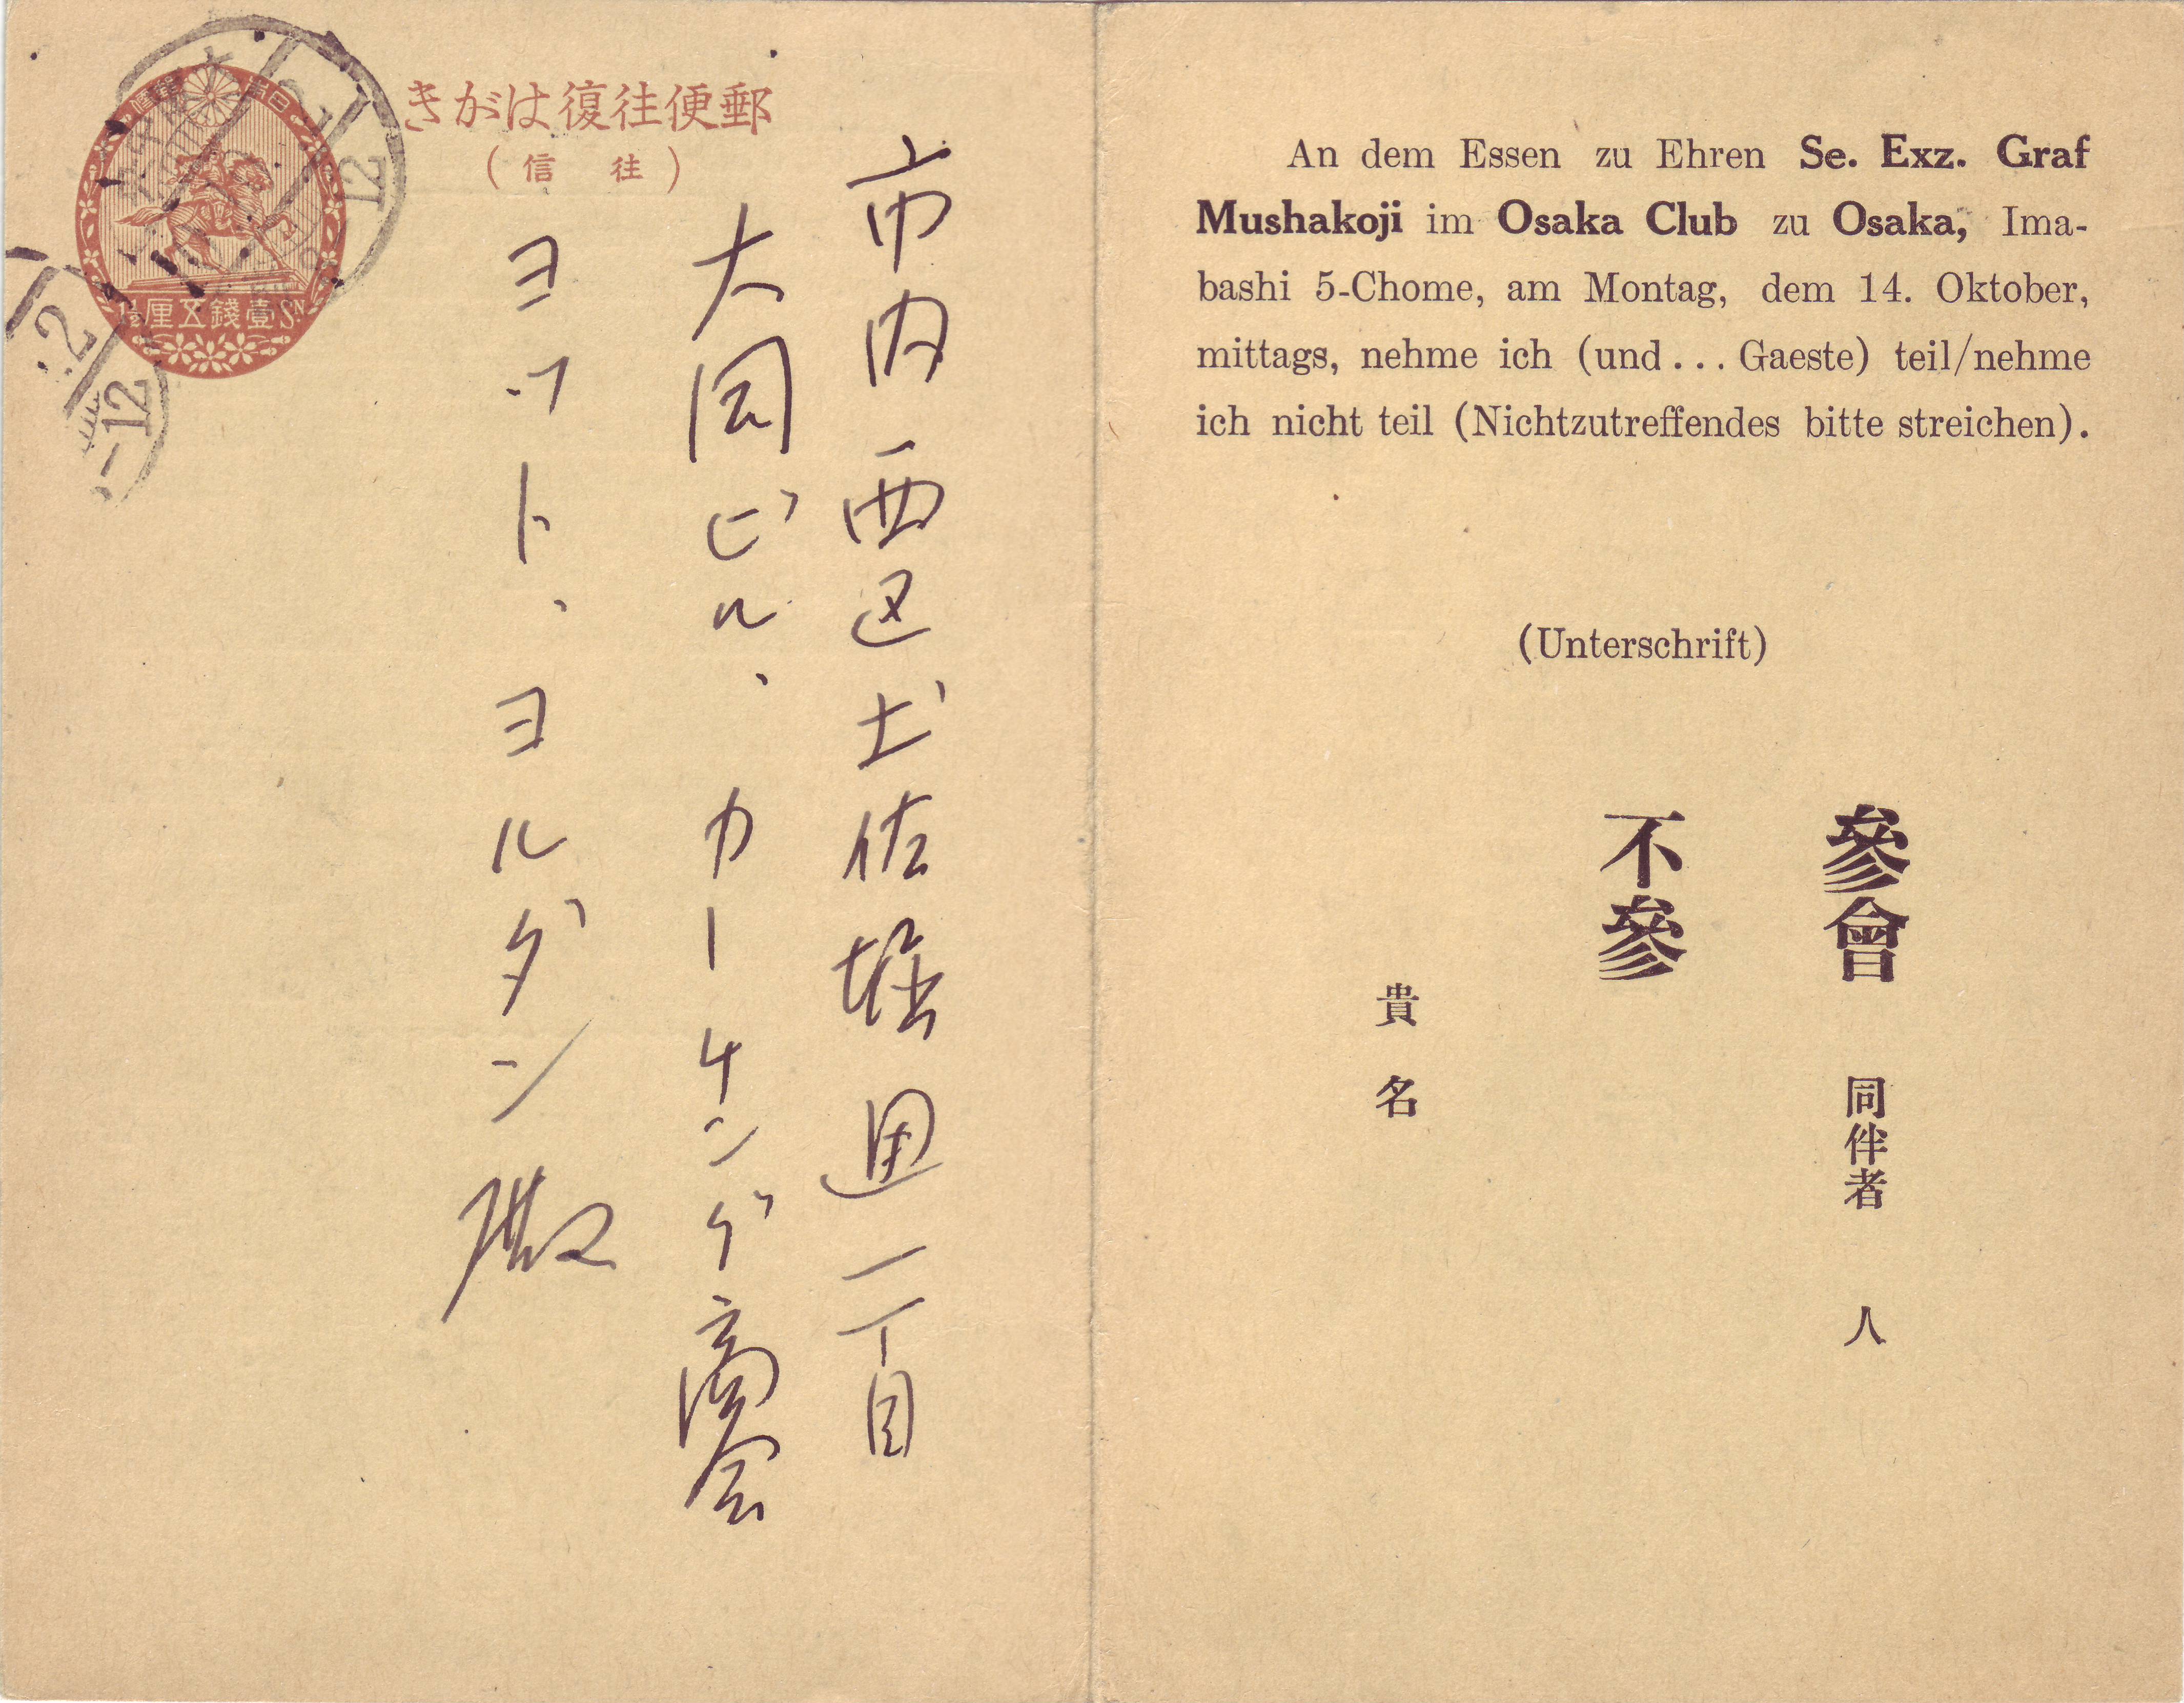 きがは復往便郵
(信 往)
壹錢五厘
市内西区土佐堀通一丁目
大同ビル、カーケンゲ商会
ヨット、ヨルダン様
An dem Essen zu Ehren Se. Exz. Graf
Mushakoji im Osaka Club zu Osaka, Ima-
bashi 5-Chome, am Montag, dem 14. Oktober,
mittags, nehme ich (und... Gaeste) teil/nehme
ich nicht teil (Nichtzutreffendes bitte streichen).
(Unterschrift)
參會 同伴者 人
不參
貴名